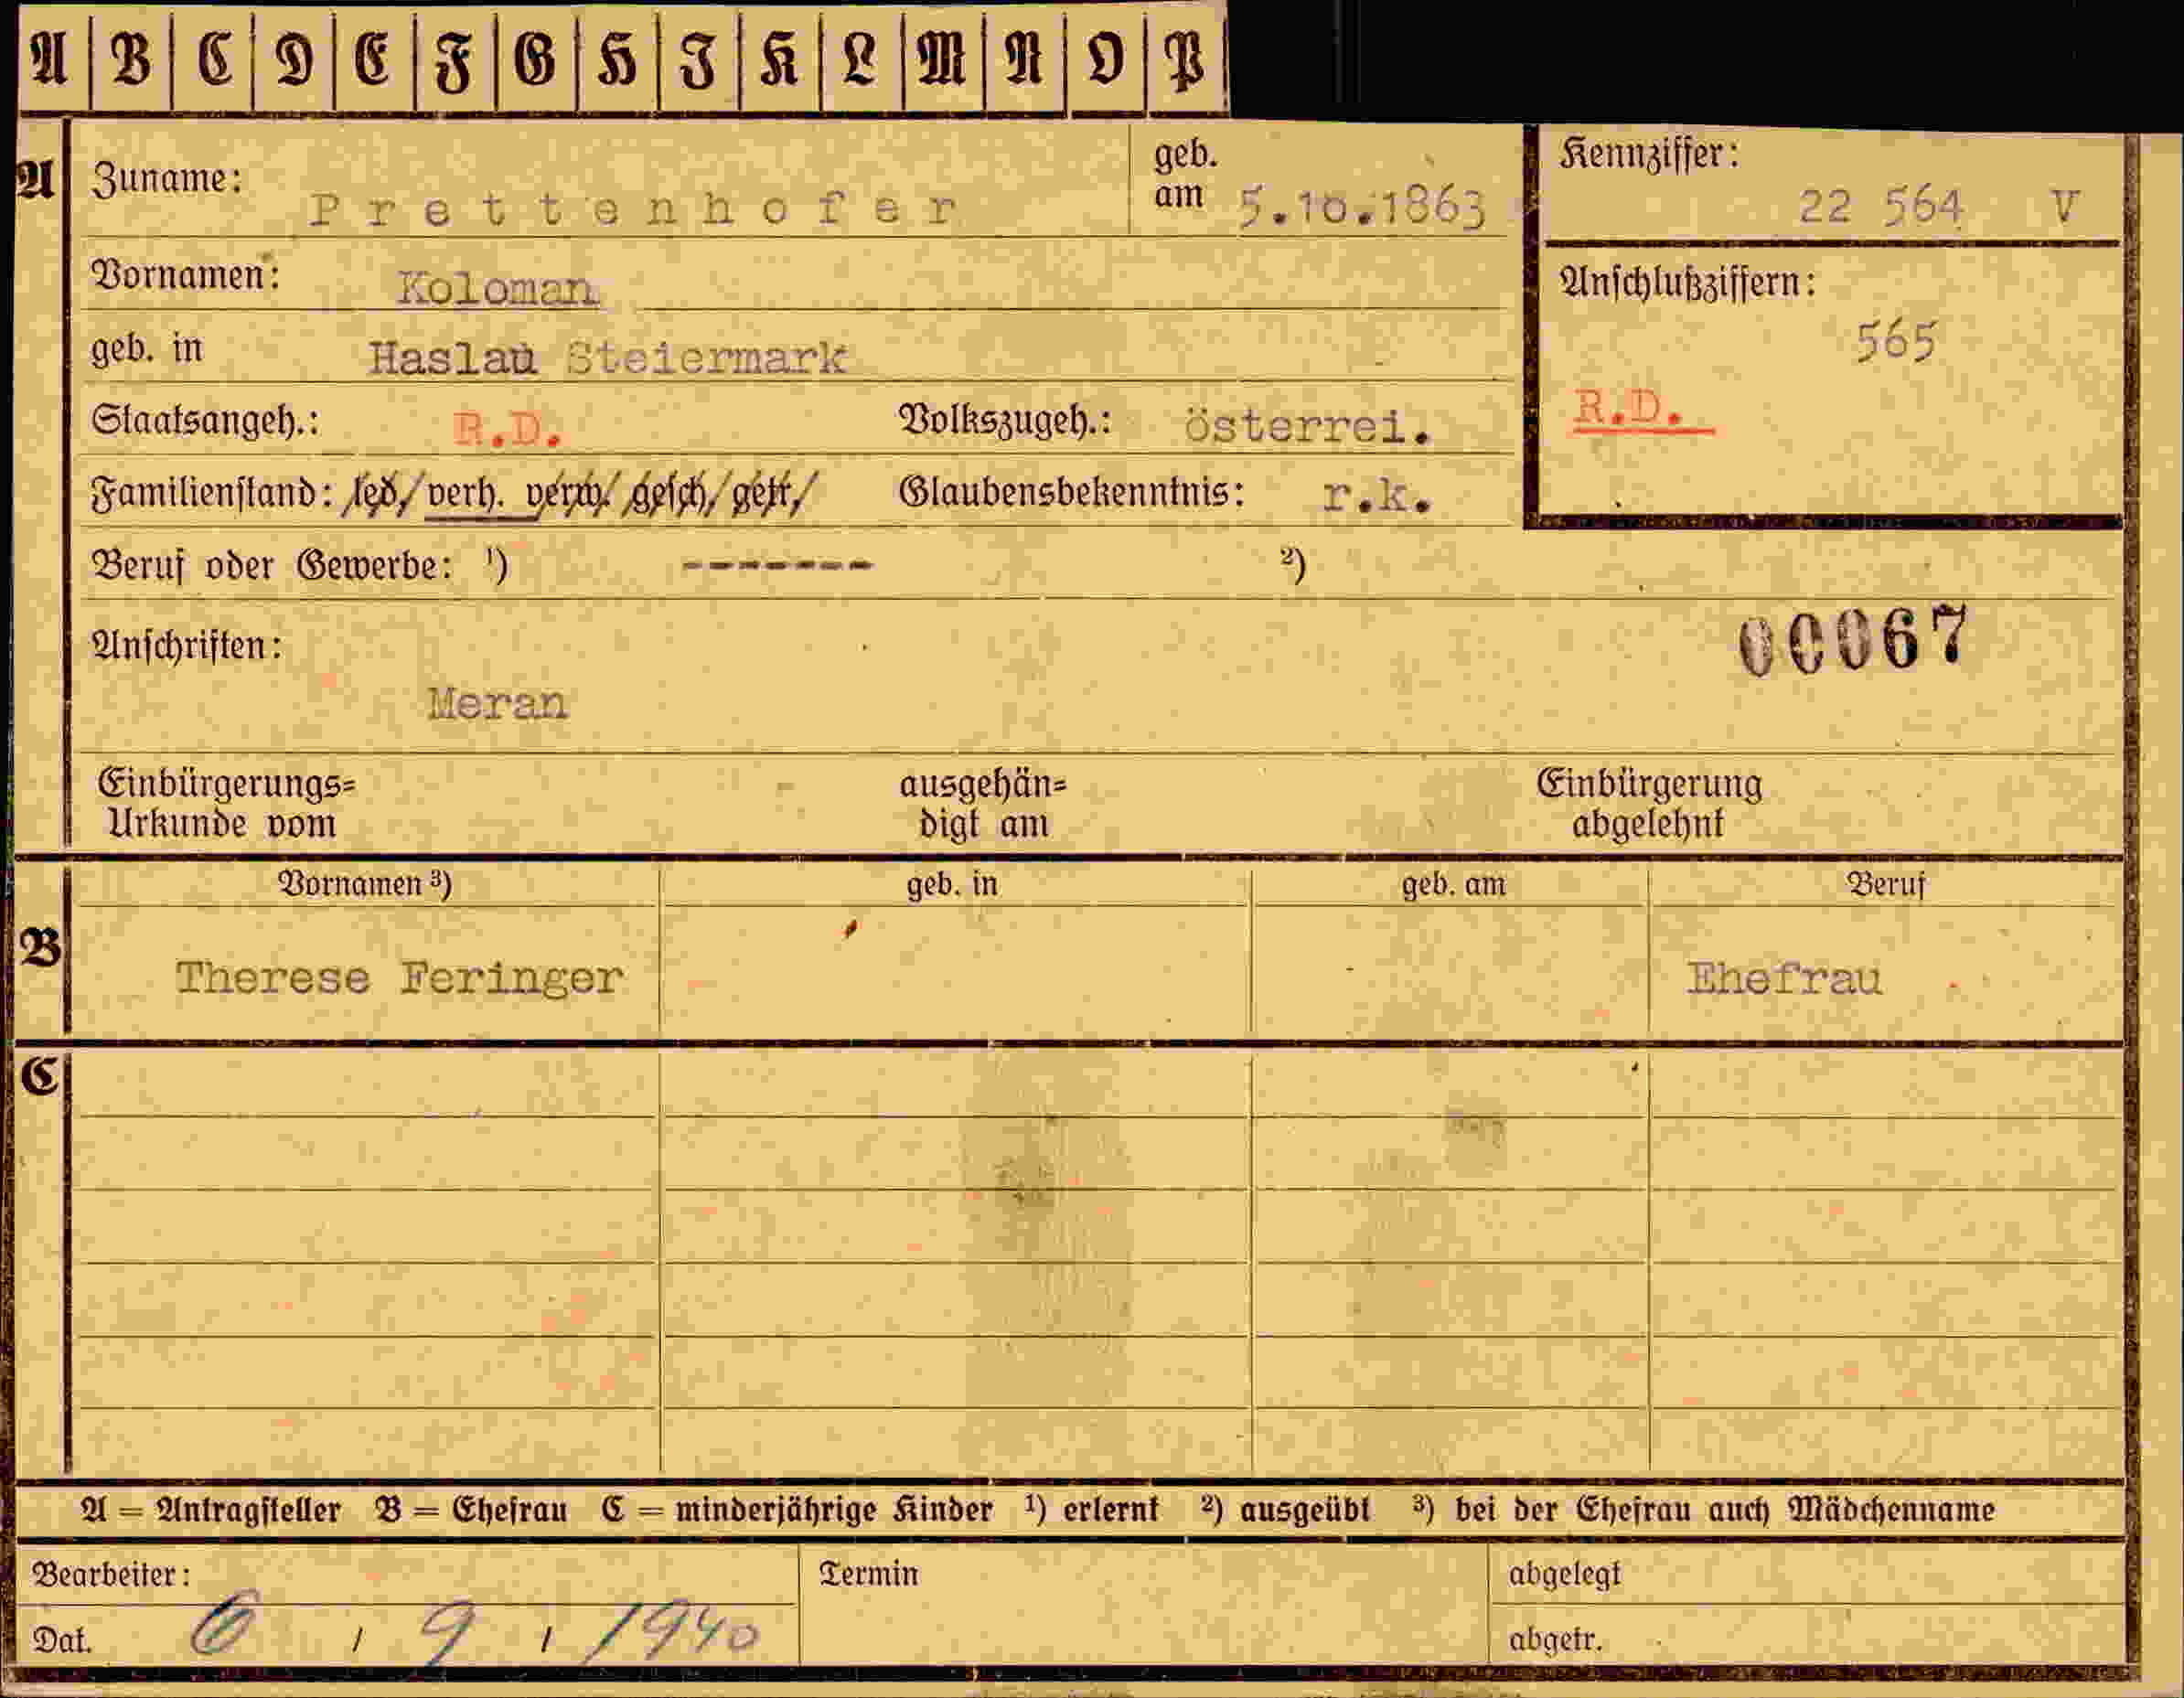 A B C D E F G H I K L M N O P
A Zuname: Prettenhofer geb. am 5.10.1863 Kennziffer: 22 564 V
Vornamen: Koloman
geb. in Haslau Steiermark Anschlußziffern: 565
Staatsangeh.: R.D. Volkszugeh.: österrei. R.D.
Familienstand: led./ verh. verw./ gesch./ getr./ Glaubensbekenntnis: r.k.
Beruf oder Gewerbe: ¹) ------- ²)
Anschriften: 00067
Meran
Einbürgerungs= ausgehän= Einbürgerung
Urkunde vom digt am abgelehnt
Vornamen ³) geb. in geb. am Beruf
B Therese Feringer Ehefrau
C
A = Antragsteller B = Ehefrau C = minderjährige Kinder ¹) erlernt ²) ausgeübt ³) bei der Ehefrau auch Mädchenname
Bearbeiter: Termin abgelegt
Dat. 6 / 9 / 1940 abgetr.